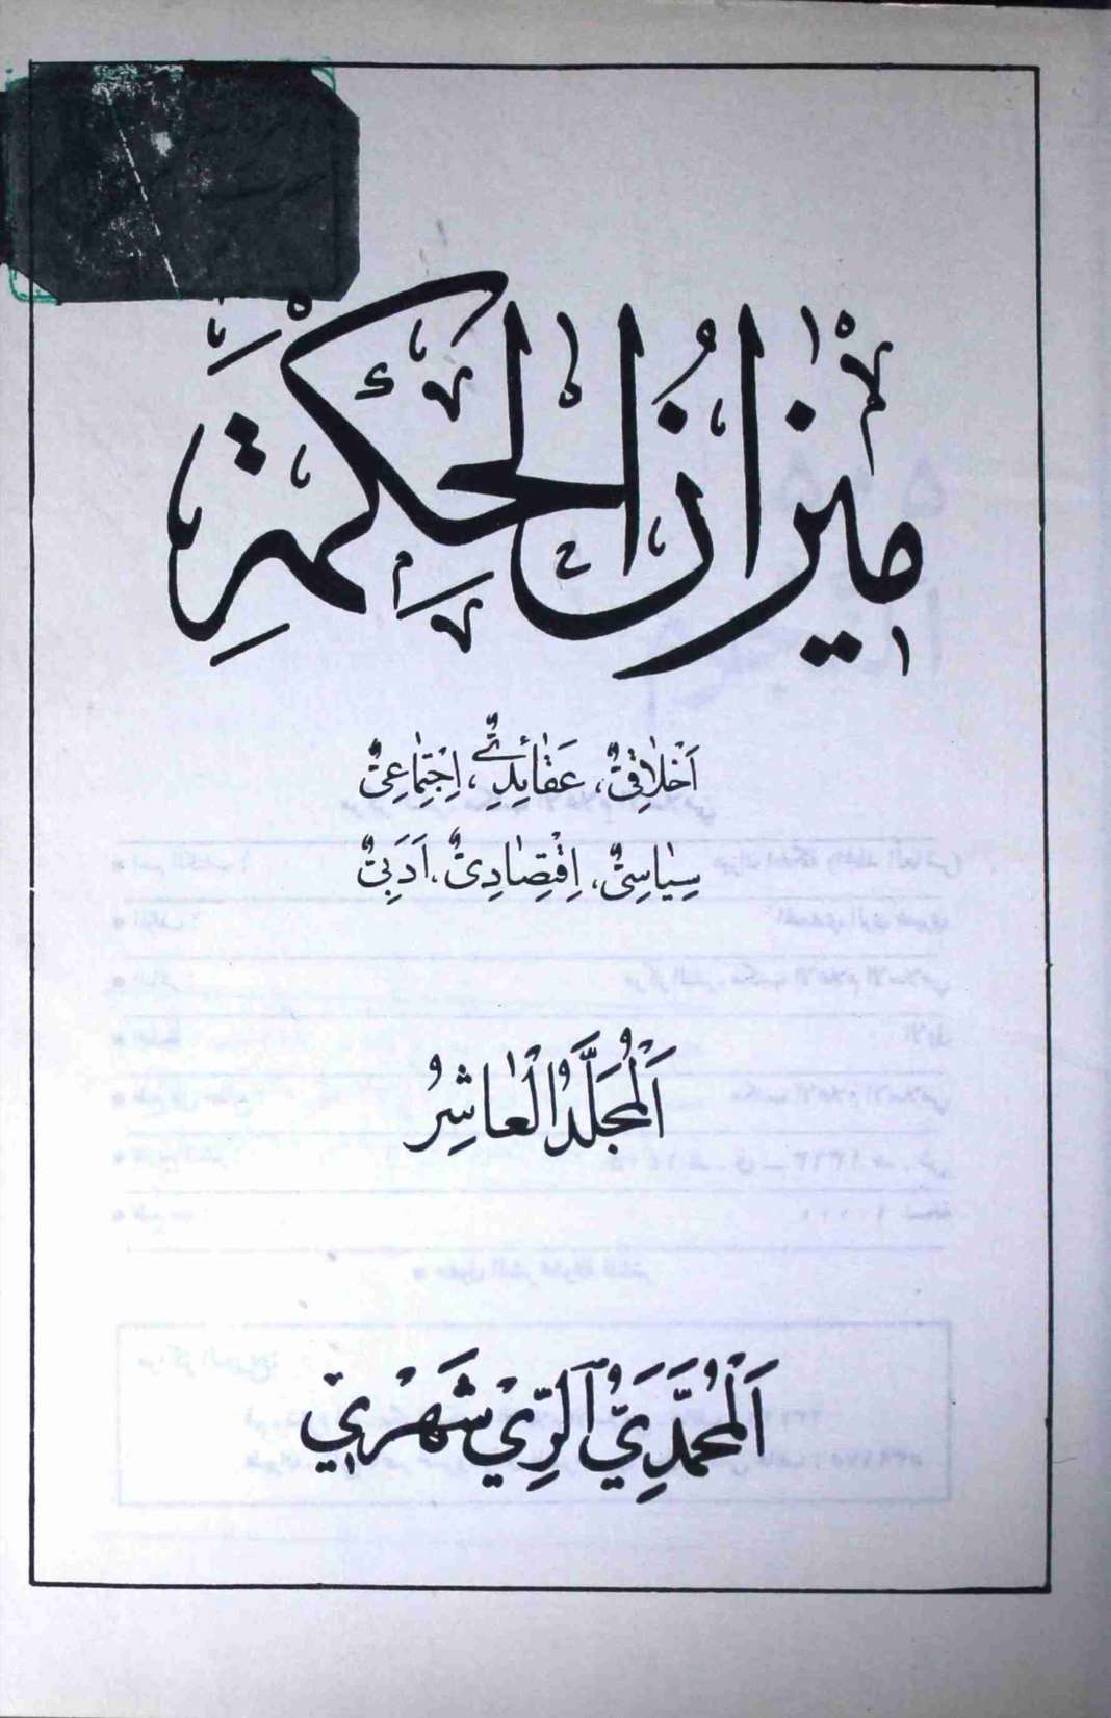 مِيزَانُ الْحِكْمَةِ
أَخْلَاقِيٌّ، عَقَائِدِيٌّ، اِجْتِمَاعِيٌّ
سِيَاسِيٌّ، اِقْتِصَادِيٌّ، أَدَبِيٌّ
اَلْمُجَلَّدُ الْعَاشِرُ
اَلْمُحَمَّدِيُّ الرَّيْ شَهْرِي